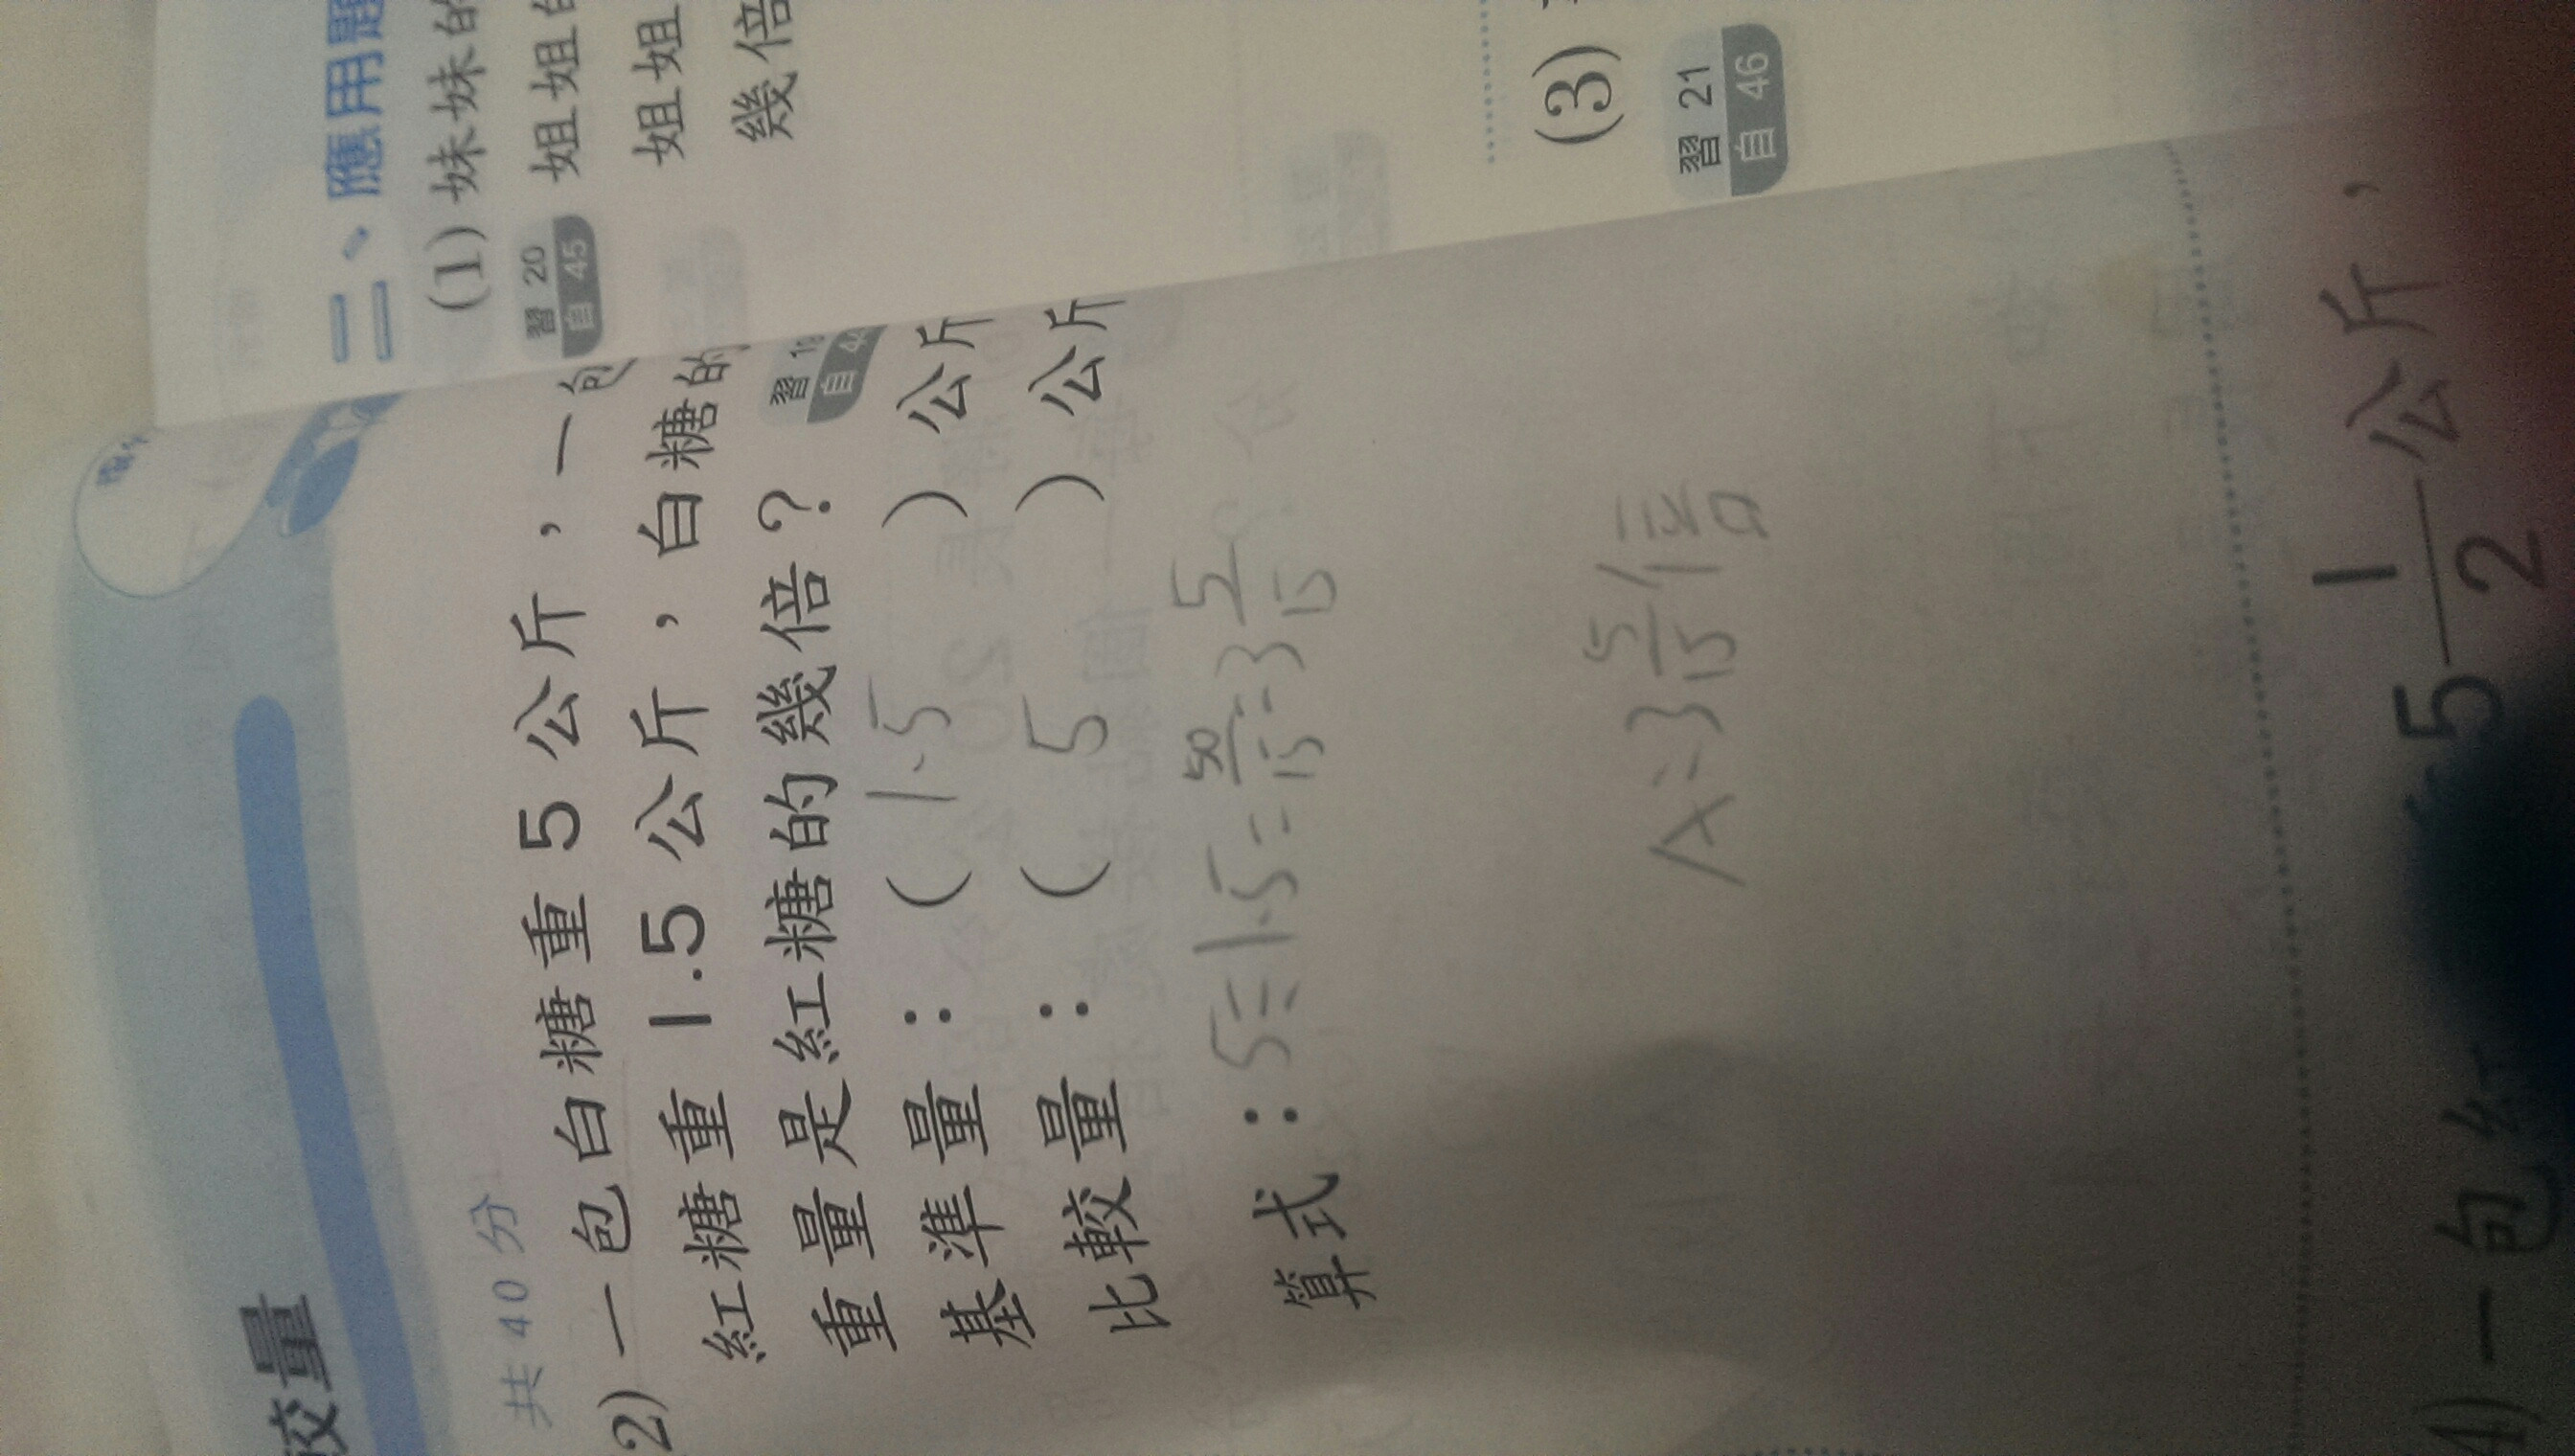 較量
共 40 分
2) 一包白糖重 5 公斤，一包
紅糖重 1.5 公斤，白糖的
重量是紅糖的幾倍？
習 19
自 44
基準量：( 1.5 ) 公斤
比較量：( 5 ) 公斤
算式：5÷1.5=50/15=3 5/15
A:3 5/15倍
4) 一包紅 5 1/2 公斤，
二、應用題
(1) 妹妹的
習 20
自 45
姐姐的
姐姐
幾倍
(3)
習 21
自 46